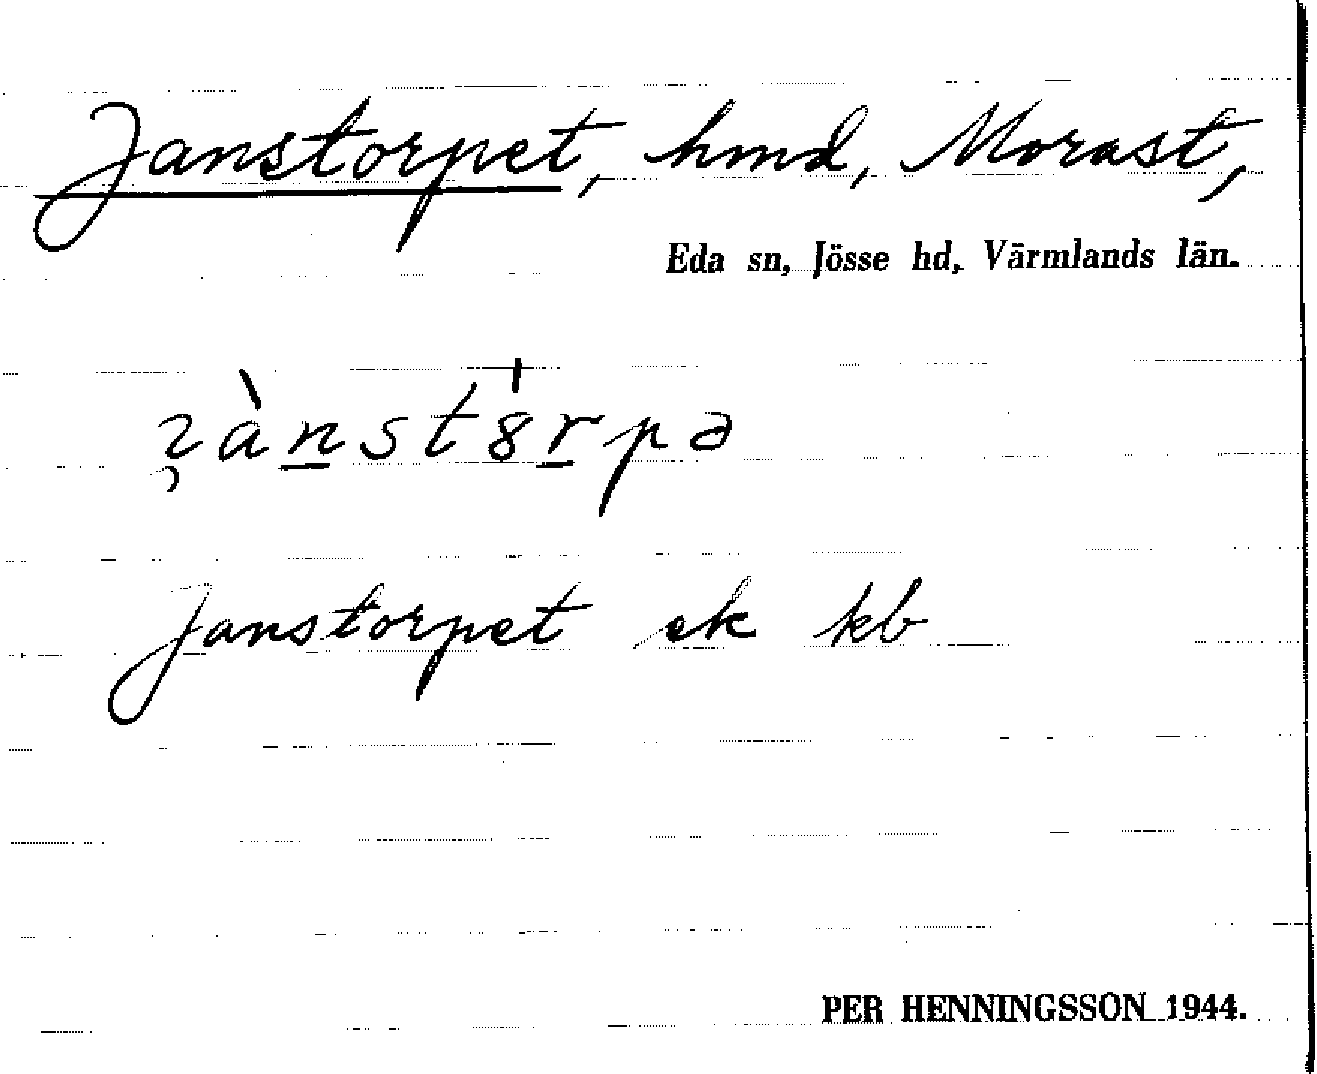 Janstorpet, hmd, Morast,
Eda sn, Jösse hd, Värmlands län.
Janstorpet ek kb
PER HENNINGSSON 1944.